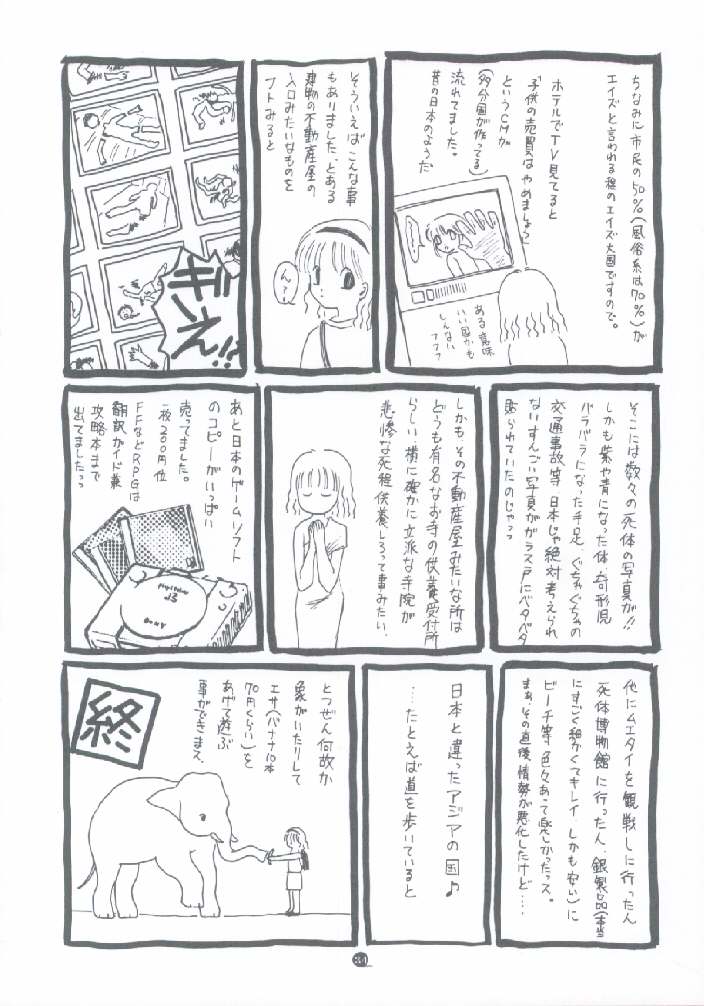 ちなみに市民の50%(風俗系は70%)が
エイズと言われる程のエイズ大国ですので。
ホテルでTV見てると
「子供の売買はやめましょう」
というCMが
(多分国が作ってる)
流れてました。
昔の日本のようだ
ある意味
いい国かも
しんない
そういえばこんな事
もありました、とある
建物の不動産屋の
入口みたいなものを
フトみると
ん?
ギえ!!
そこには数々の死体の写真が!!
しかも紫や青になった体、奇形児
バラバラになった手足、ぐちゃぐちゃの
交通事故等 日本じゃ絶対考えられ
ないすんごい写真がガラス戸にベタベタ
貼られていたのじゃっっ
しかも、その不動産屋みたいな所は
どうも有名なお寺の供養受付所
らしい、横に確かに立派な寺院が
悲惨な死程供養しろって事みたい、
あと日本のゲームソフト
のコピーがいっぱい
売ってました。
一枚200円位
FFなどRPGは
翻訳ガイド兼
攻略本まで
出てましたっっ
他にムエタイを観戦しに行ったり
死体博物館に行ったり、銀製品(本当
にすごく細かくてキレイ、しかも安い)に
ビーチ等、色々あって楽しかったっス。
まぁ、その直後情勢が悪化したけど……
日本と違ったアジアの国♪
…たとえば道を歩いていると
とつぜん何故か
象がいたりして
エサ(バナナ10本
70円くらい)を
あげて遊ぶ
事ができます、
終
34